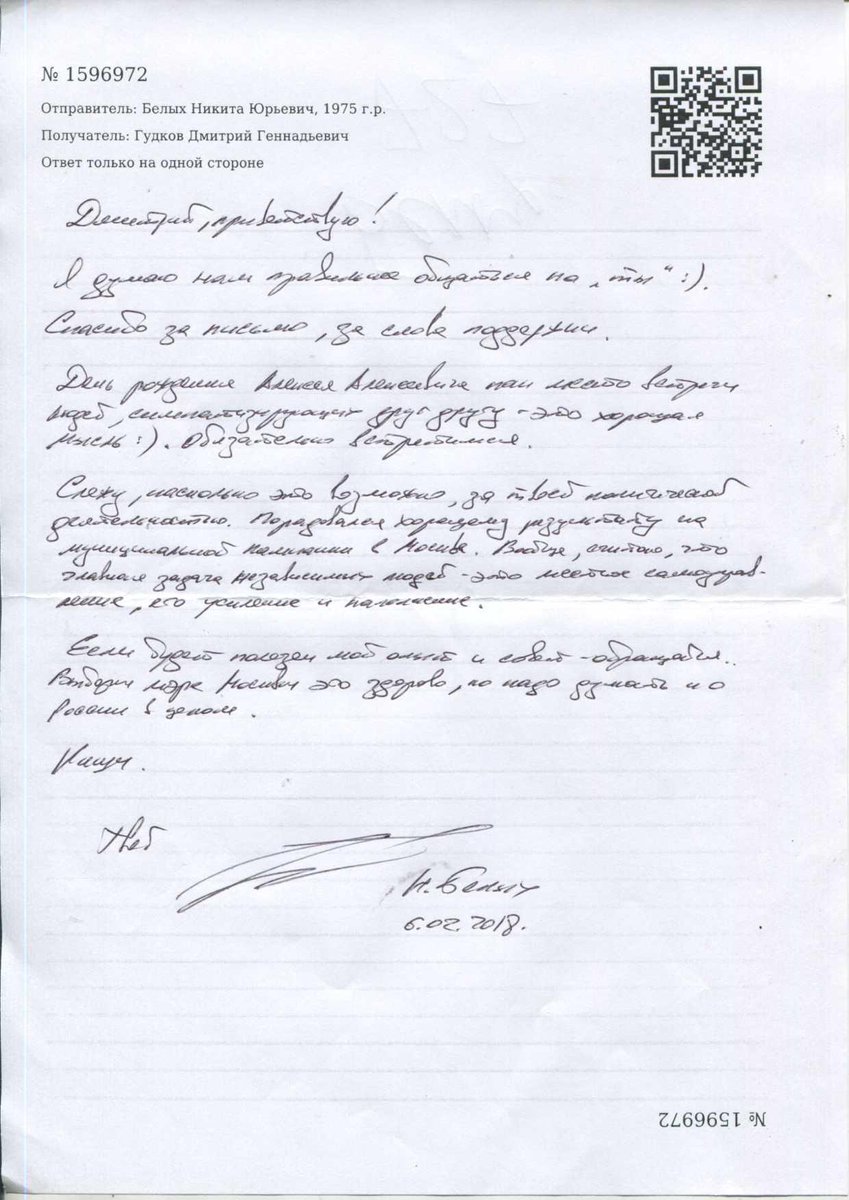 № 1596972
Отправитель: Белых Никита Юрьевич, 1975 г.р.
Получатель: Гудков Дмитрий Геннадьевич
Ответ только на одной стороне
Дмитрий, приветствую!
Я думаю нам правильнее общаться на „ты“ :).
Спасибо за письмо, за слова поддержки.
День рождения Алексея Алексеевича как место встречи
людей, симпатизирующих друг другу - это хорошая
мысль :). Обязательно встретимся.
Слежу, насколько это возможно, за твоей политической
деятельностью. Порадовался хорошему результату на
муниципальной кампании в Москве. Вообще, считаю, что
главная задача независимых людей - это местное самоуправ-
ление, его усиление и
Если будет полезен мой опыт и совет - обращайся.
Выборы мэра Москвы это здорово, но надо думать и о
России в целом.
Пиши.
Твой
Н. Белых
6.02.2018.
№ 1596972